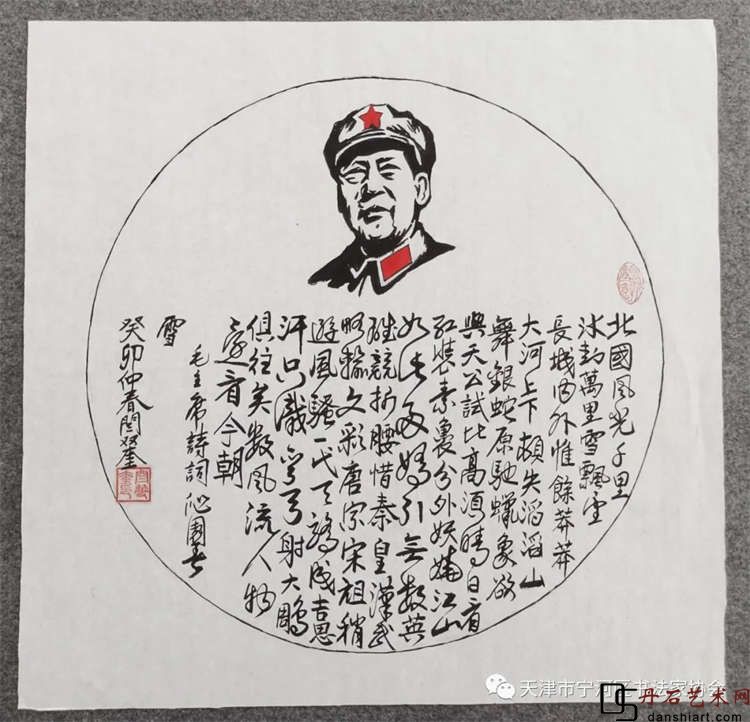 北國風光千里
冰封萬里雪飄望
長城內外惟餘莽莽
大河上下頓失滔滔山
舞銀蛇原馳蠟象欲
與天公試比高須晴日看
紅裝素裹分外妖嬈江山
如此多嬌引無數英
雄競折腰惜秦皇漢武
略輸文彩唐宗宋祖稍
遜風騷一代天驕成吉思
汗只識彎弓射大鵰
俱往矣數風流人物
還看今朝
毛主席詩詞沁園春
雪
癸卯仲春閆双奎
天津市宁河区书法家协会
丹石艺术网
danshiart.com